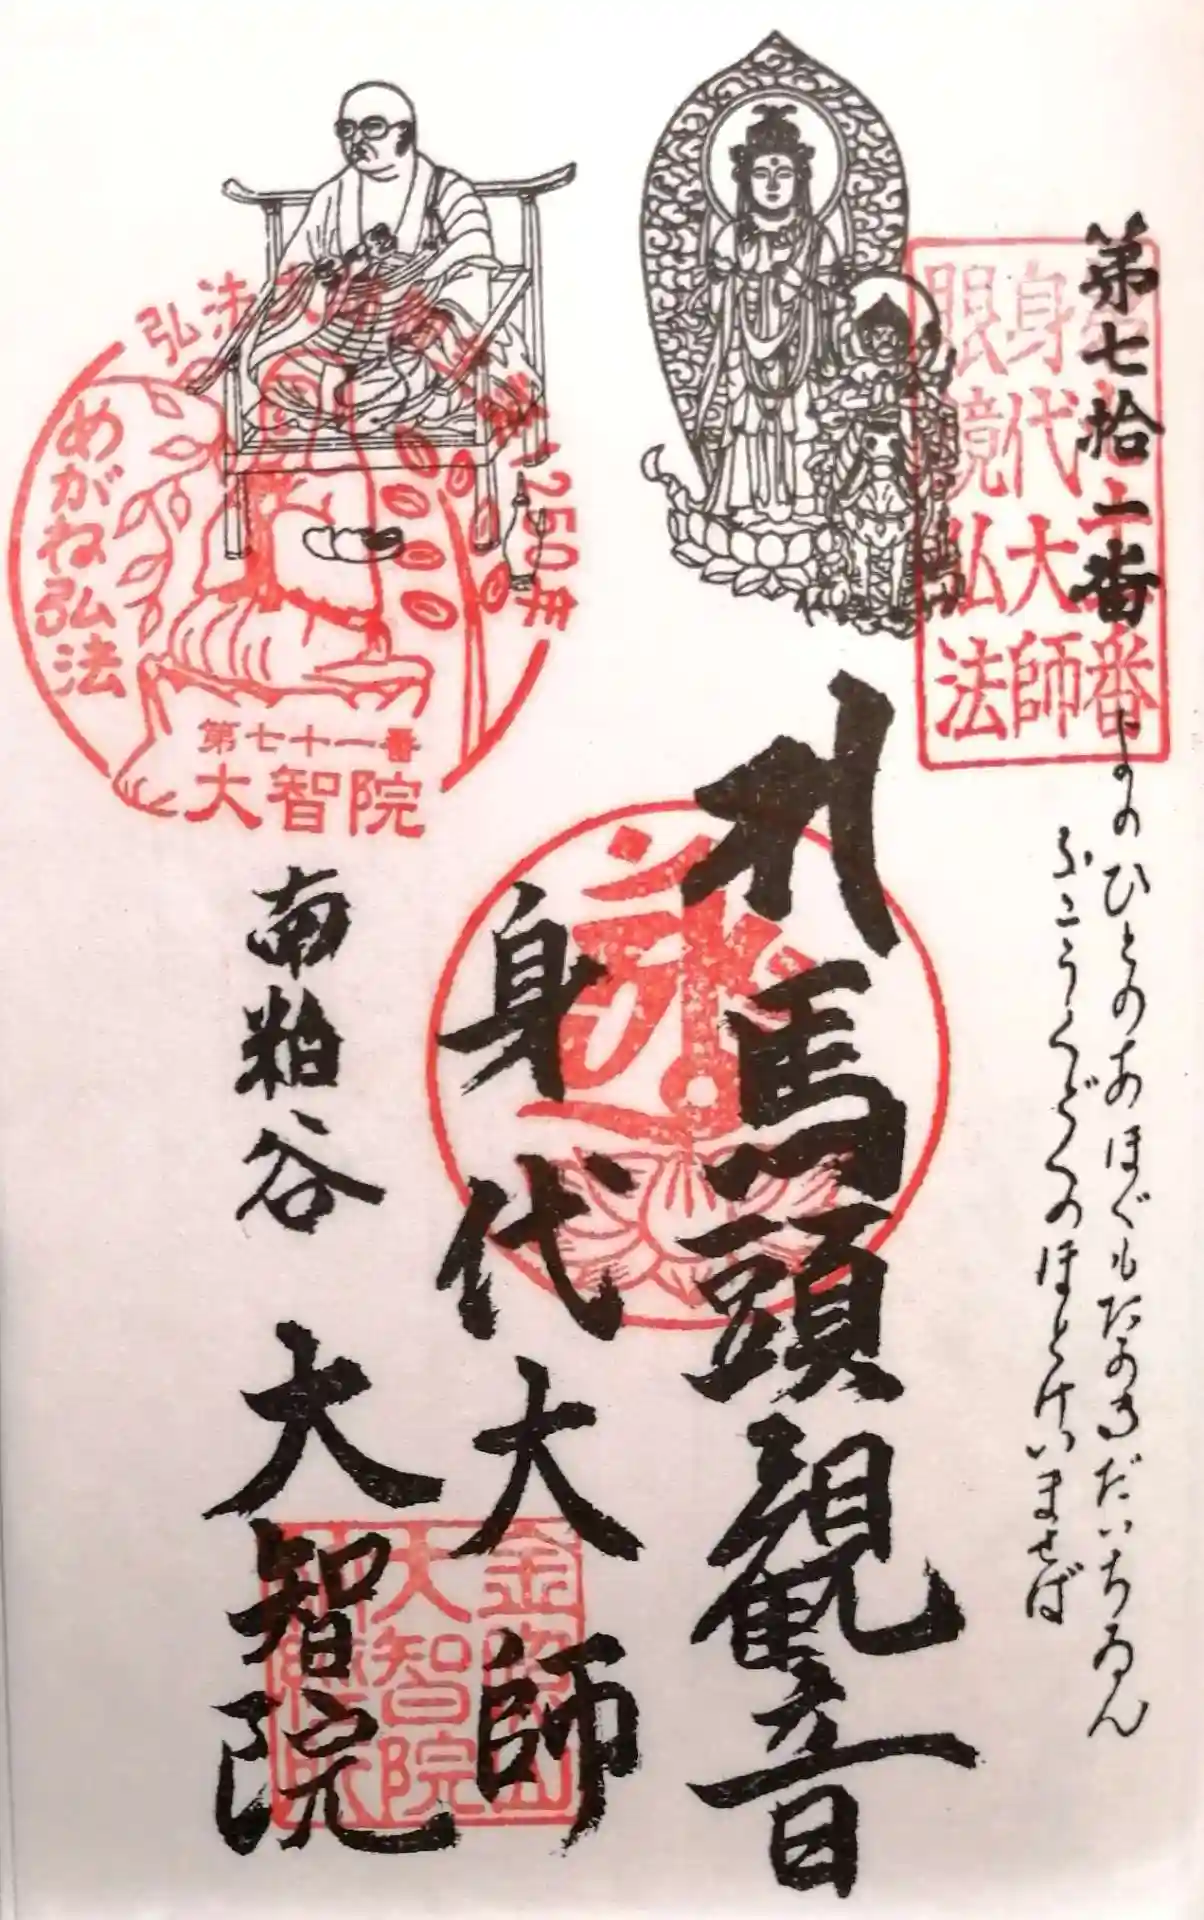 第七拾一番
身代大師
眼鏡弘法
よのひとのあほぐもたかきだいちゐん
くどくのほとけいませば
馬頭観音
身代大師
南粕谷 大智院
弘法大師御生誕1250年
めがね弘法
第七十一番
大智院
大智院